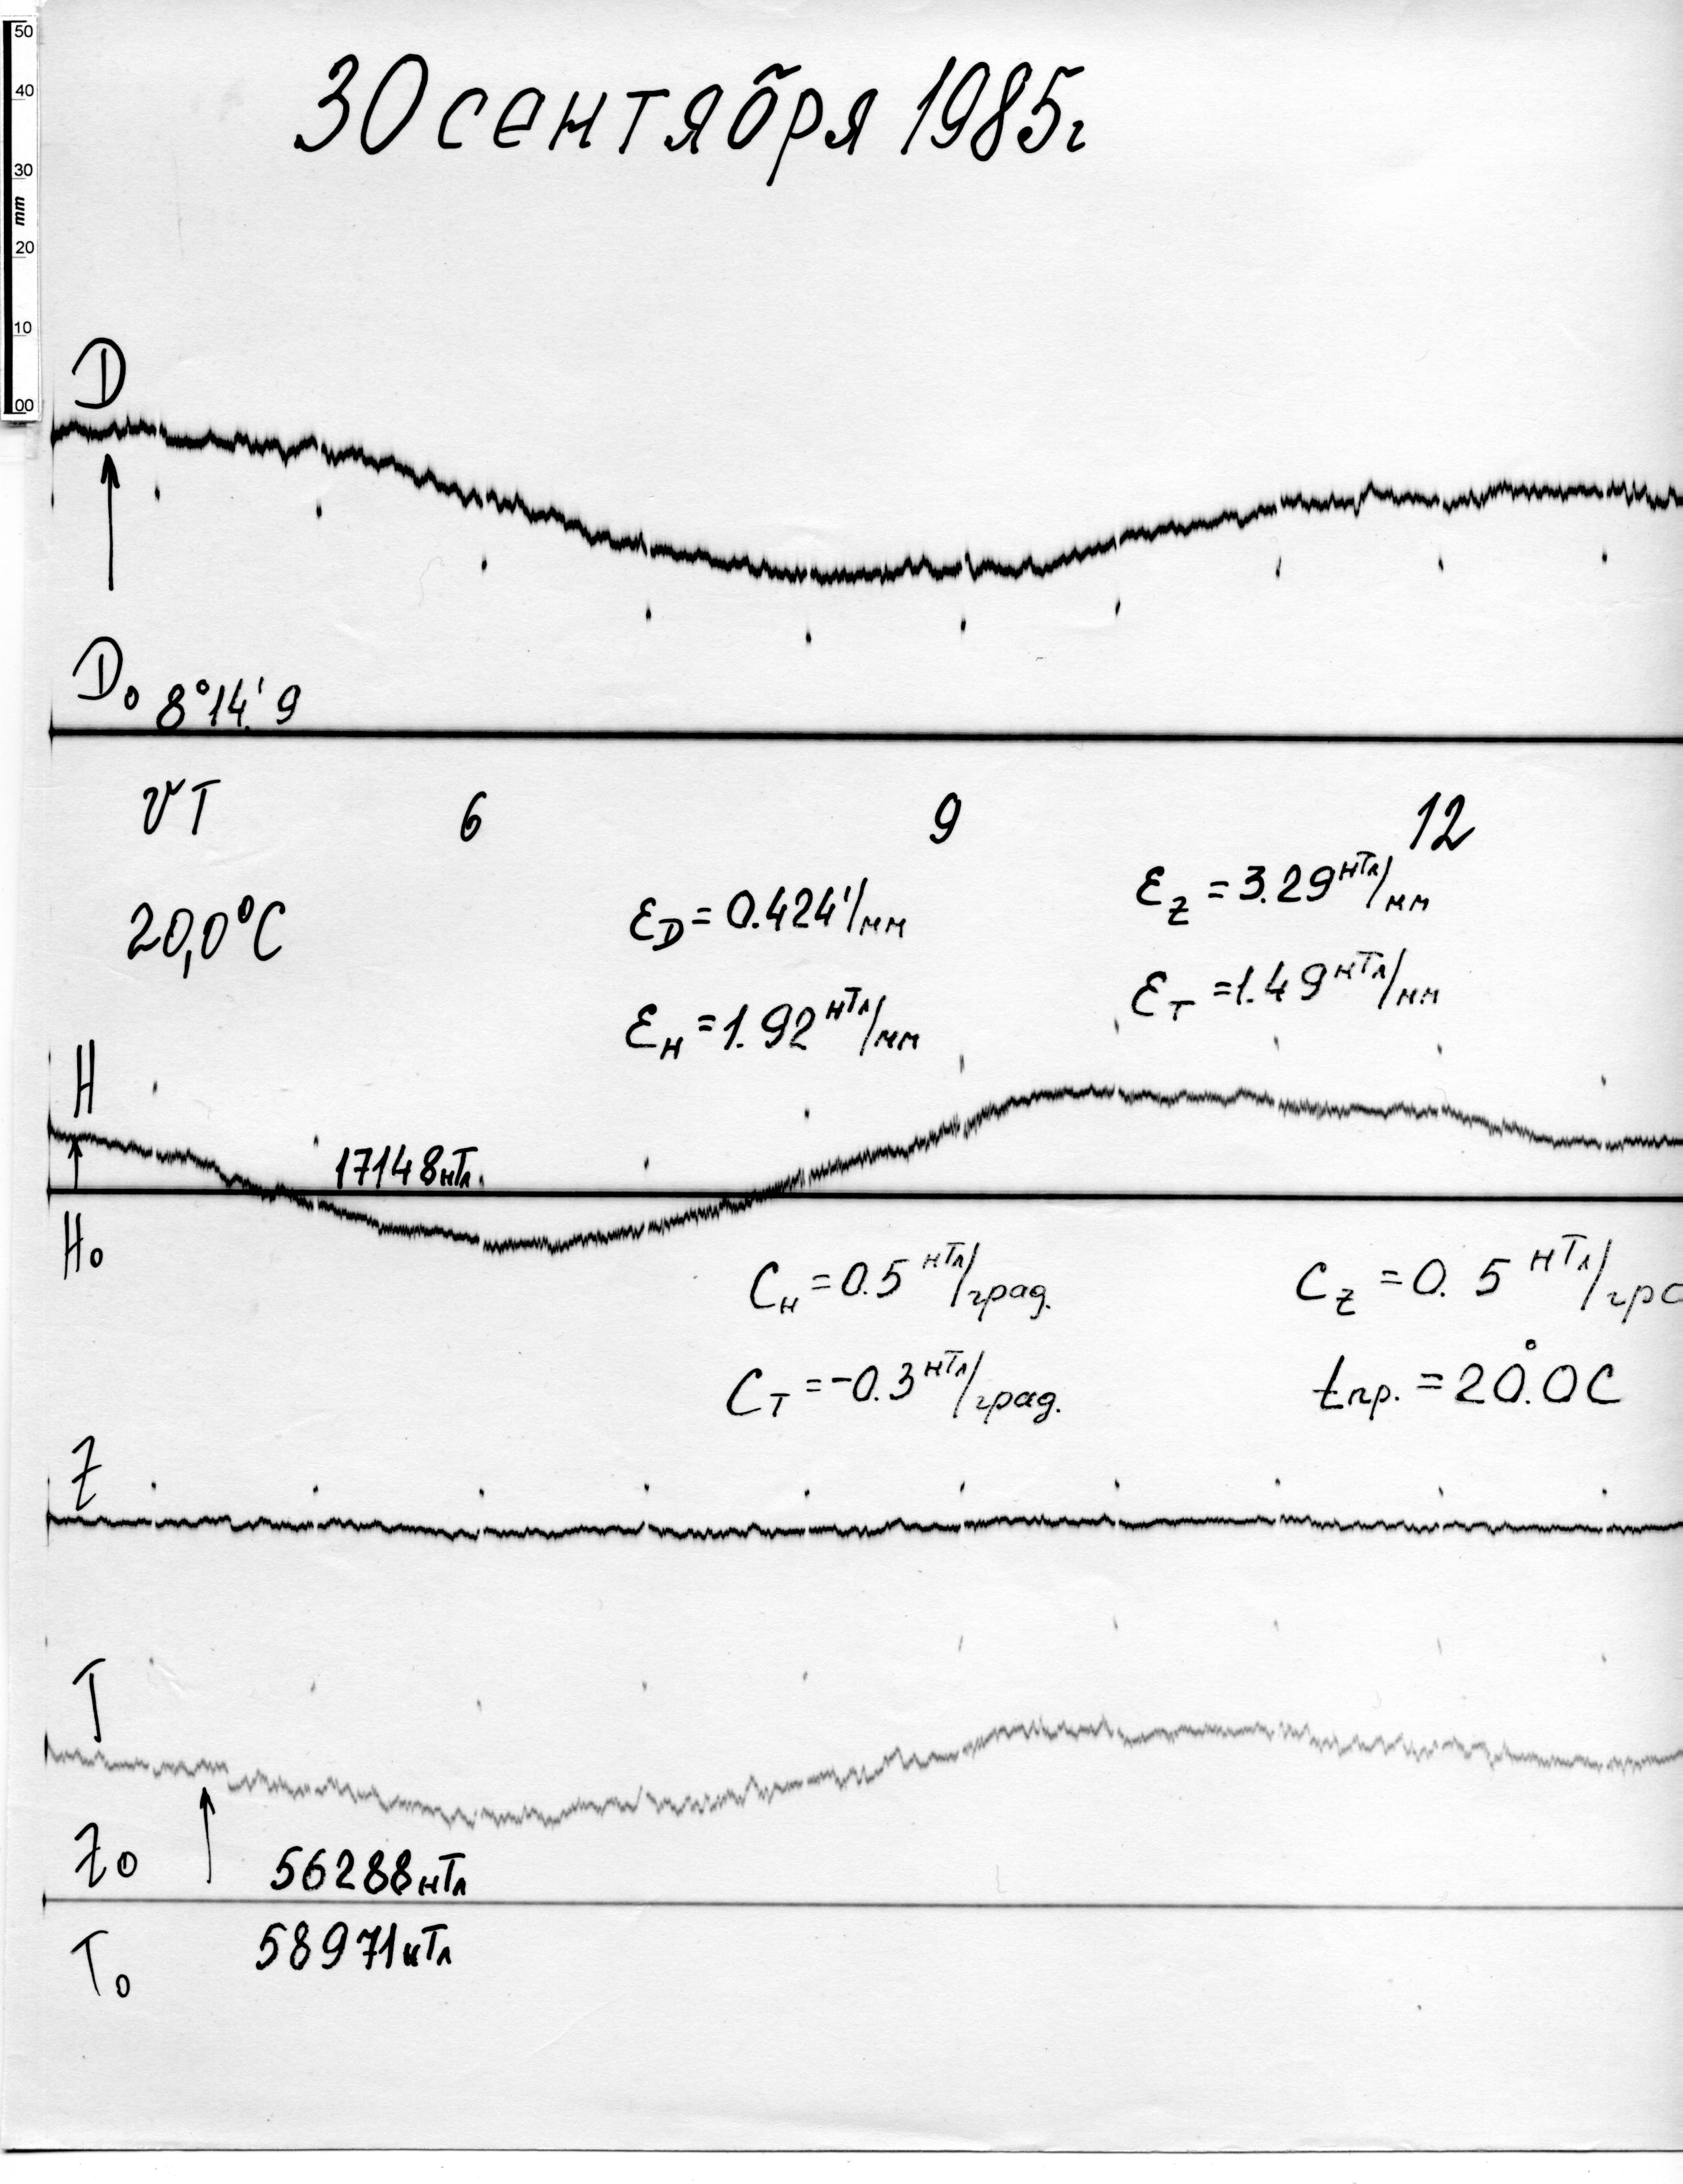 50
40
30
mm
20
10
00
30 сентября 1985г
D
D₀ 8°14.'9
UT 6 9 12
20,0°C
ε_D = 0.424'/мм
ε_Z = 3.29 нТл/мм
ε_H = 1.92 нТл/мм
ε_T = 1.49 нТл/мм
H
17148 нТл.
H₀
C_H = 0.5 нТл/град.
C_Z = 0.5 нТл/гра
C_T = -0.3 нТл/град.
tпр. = 20°.0C
Z
T
Z₀ 56288 нТл
T₀ 58971 нТл